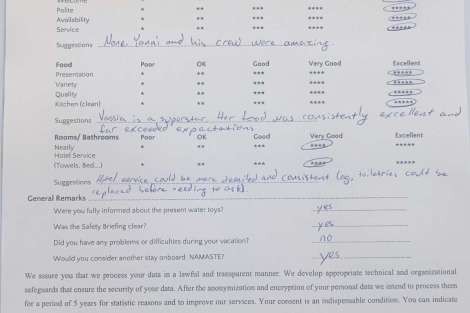 Welcome * ** *** **** *****
Polite * ** *** **** *****
Availability * ** *** **** *****
Service * ** *** **** *****
Suggestions None. Yanni and his crew were amazing.
Food Poor OK Good Very Good Excellent
Presentation * ** *** **** *****
Variety * ** *** **** *****
Quality * ** *** **** *****
Kitchen (clean) * ** *** **** *****
Suggestions Vassia is a superstar. Her food was consistently excellent and
far exceeded expectations
Rooms/ Bathrooms Poor OK Good Very Good Excellent
Neatly * ** *** **** *****
Hotel Service
(Towels, Bed...) * ** *** **** *****
Suggestions Hotel service could be more detailed and consistent (eg. toiletries could be
replaced before needing to ask).
General Remarks
Were you fully informed about the present water toys? yes
Was the Safety Briefing clear? yes
Did you have any problems or difficulties during your vacation? no
Would you consider another stay onboard NAMASTE? yes
We assure you that we process your data in a lawful and transparent manner. We develop appropriate technical and organizational
safeguards that ensure the security of your data. After the anonymization and encryption of your personal data we intend to process them
for a period of 5 years for statistic reasons and to improve our services. Your consent is an indispensable condition. You can indicate